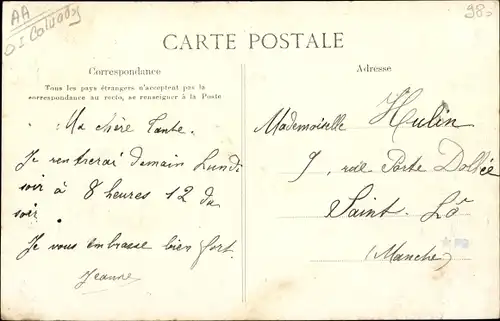 AA
OI Calvados
98
CARTE POSTALE
Correspondance
Tous les pays étrangers n'acceptent pas la
correspondance au recto, se renseigner à la Poste
Ma chère Tante.
Je rentrerai demain Lundi
soir à 8 heures 12 du
soir.
Je vous embrasse bien fort.
Jeanne
Adresse
Mademoiselle Hulin
9, rue Porte Dollée
Saint-Lô
(Manche)